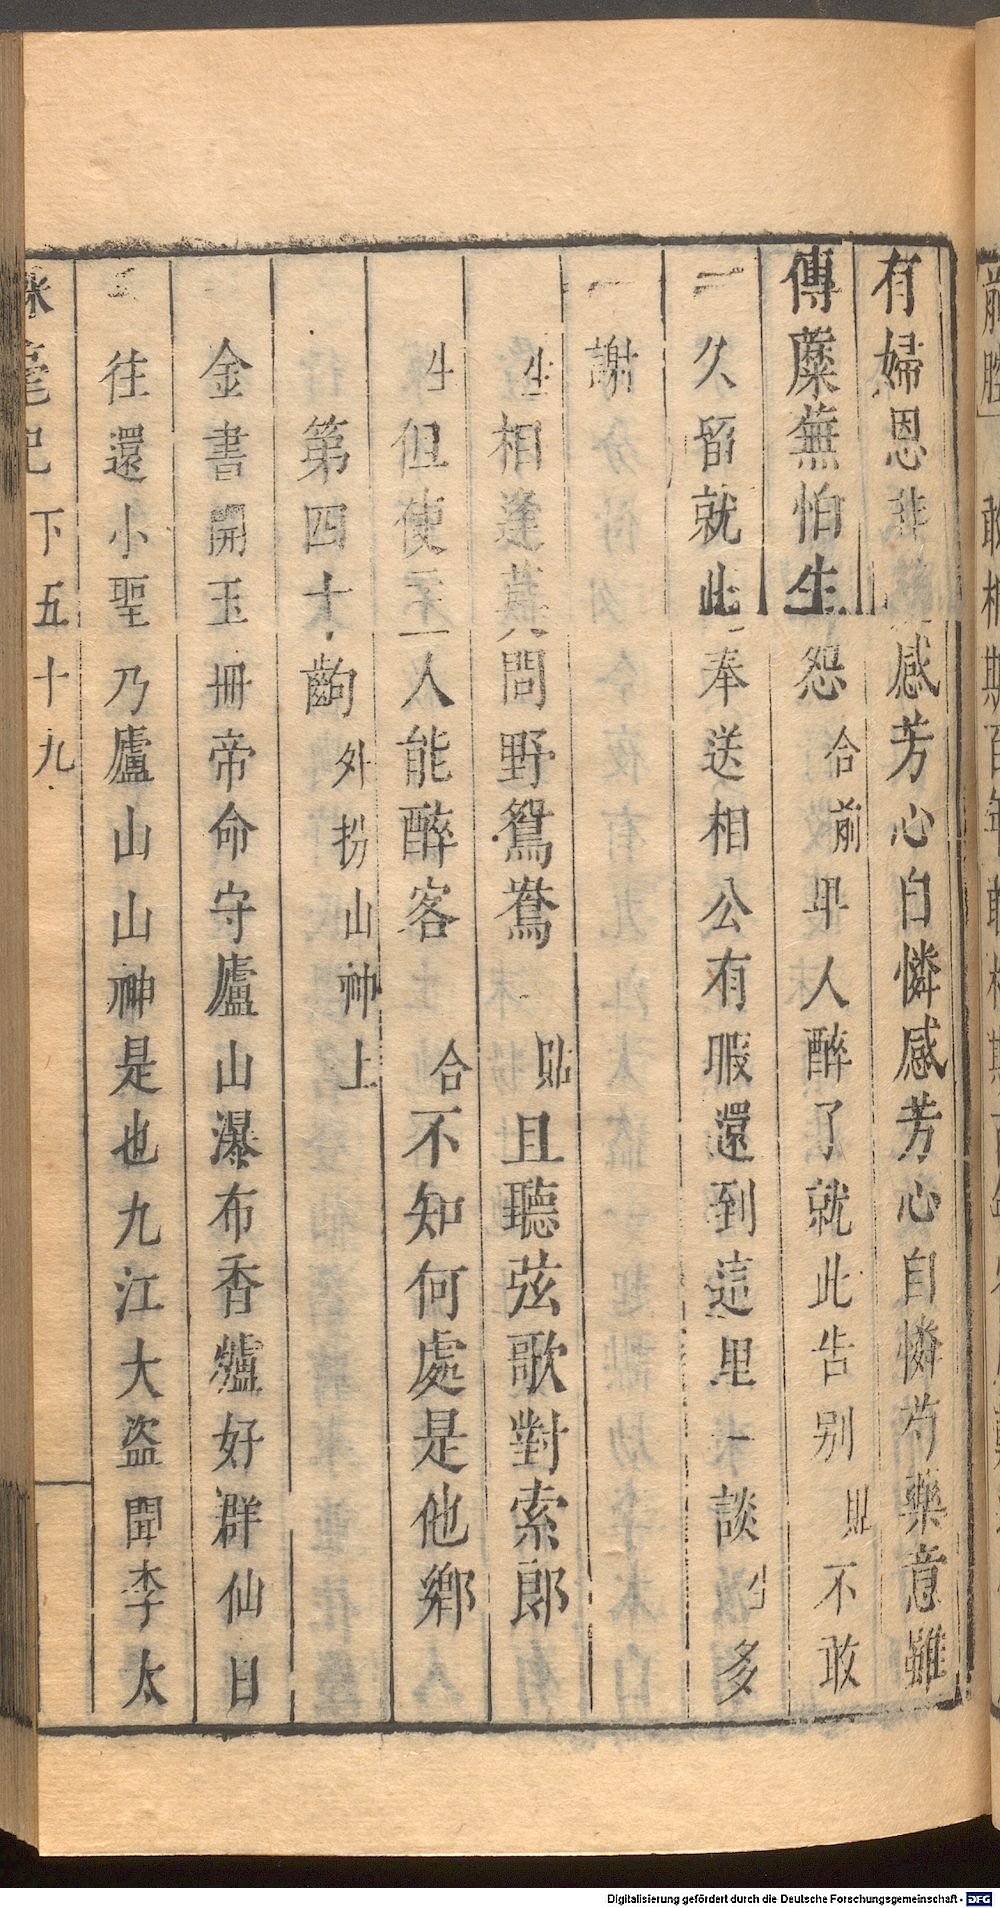 有婦恩非薄感芳心自憐感芳心自憐芍藥意雖
傳蘪蕪怕生怨合前早人醉了就此告别貼不敢
久留就此奉送相公有暇還到這里一談生多
謝
生相逢莫問野鴛鴦貼且聽弦歌對索郎
生但使主人能醉客合不知何處是他鄉
第四十齣外扮山神上
金書開玉冊帝命守廬山瀑布香爐好群仙日
往還小聖乃廬山山神是也九江大盜聞李太
毫記 下五十九
Digitalisierung gefördert durch die Deutsche Forschungsgemeinschaft - DFG